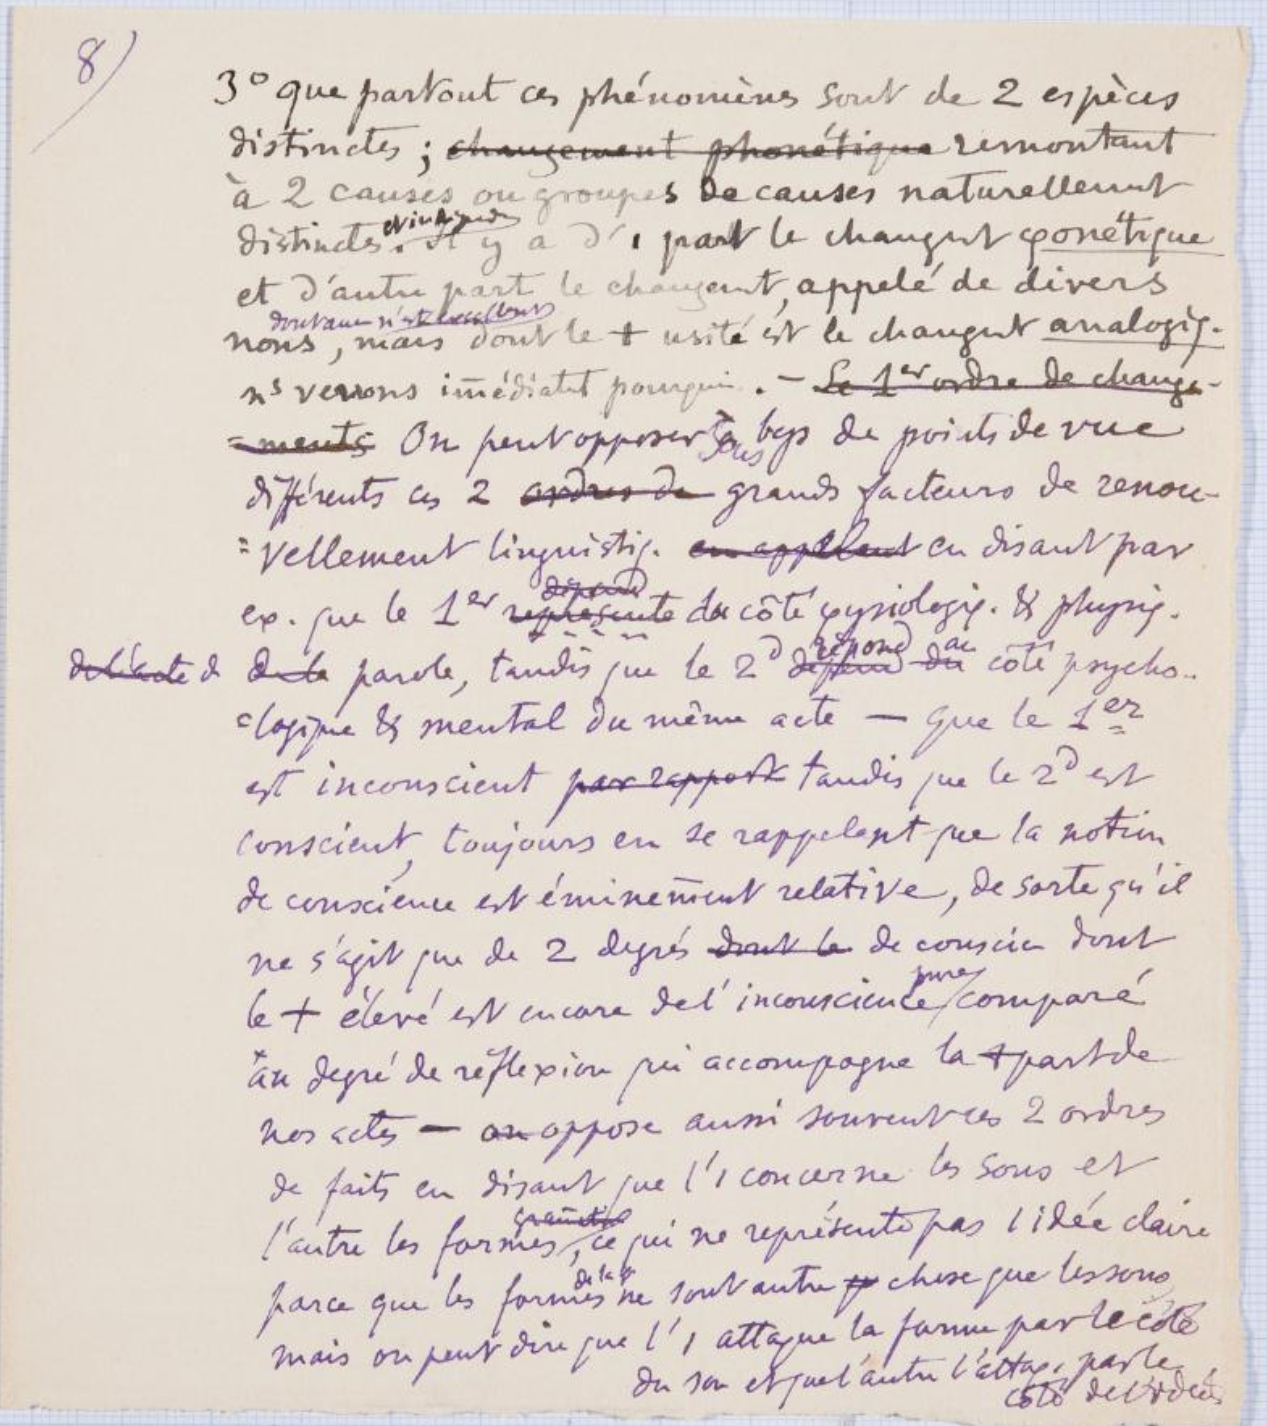 8)
3° que partout ces phénomènes sont de 2 espèces
distinctes ; changement phonétique remontant
à 2 causes ou groupes de causes naturellement
distinctes. Il y a d'1 part le changent φonétique
et d'autre part le changemt, appelé de divers
dont aucun n'est excellent
noms, mais dont le + usité est le changent analogiq.
ns verrons im̄édiatt pourquoi. - Le 1er ordre de change-
=ments On peut opposer sous bcp de points de vue
différents ces 2 ordres de grands facteurs de renou-
=vellement linguistiq. en appelant en disant par
dépend
ex. que le 1er représente du côté φysiologiq. & physiq.
répond au
de l'acte d de la parole, tandis que le 2d dépend du côté psycho-
=logique & mental du même acte — que le 1er
est inconscient par rapport tandis que le 2d est
conscient, toujours en se rappelant que la notion
de conscience est éminem̄ent relative, de sorte qu'il
ne s'agit que de 2 degrés dont le de conscice dont
pure
le + élevé est encore de l'inconscience comparé
au degré de réflexion qui accompagne la + part de
nos actes — on oppose aussi souvent ces 2 ordres
de faits en disant que l'1 concerne les sons et
l'autre les formes, ce qui ne représente pas 1 idée claire
de la
parce que les formes ne sont autre chose que les sons
mais on peut dire que l'1 attaque la forme par le côté
du son et que l'autre l'attaq. par le
côté de l'idée